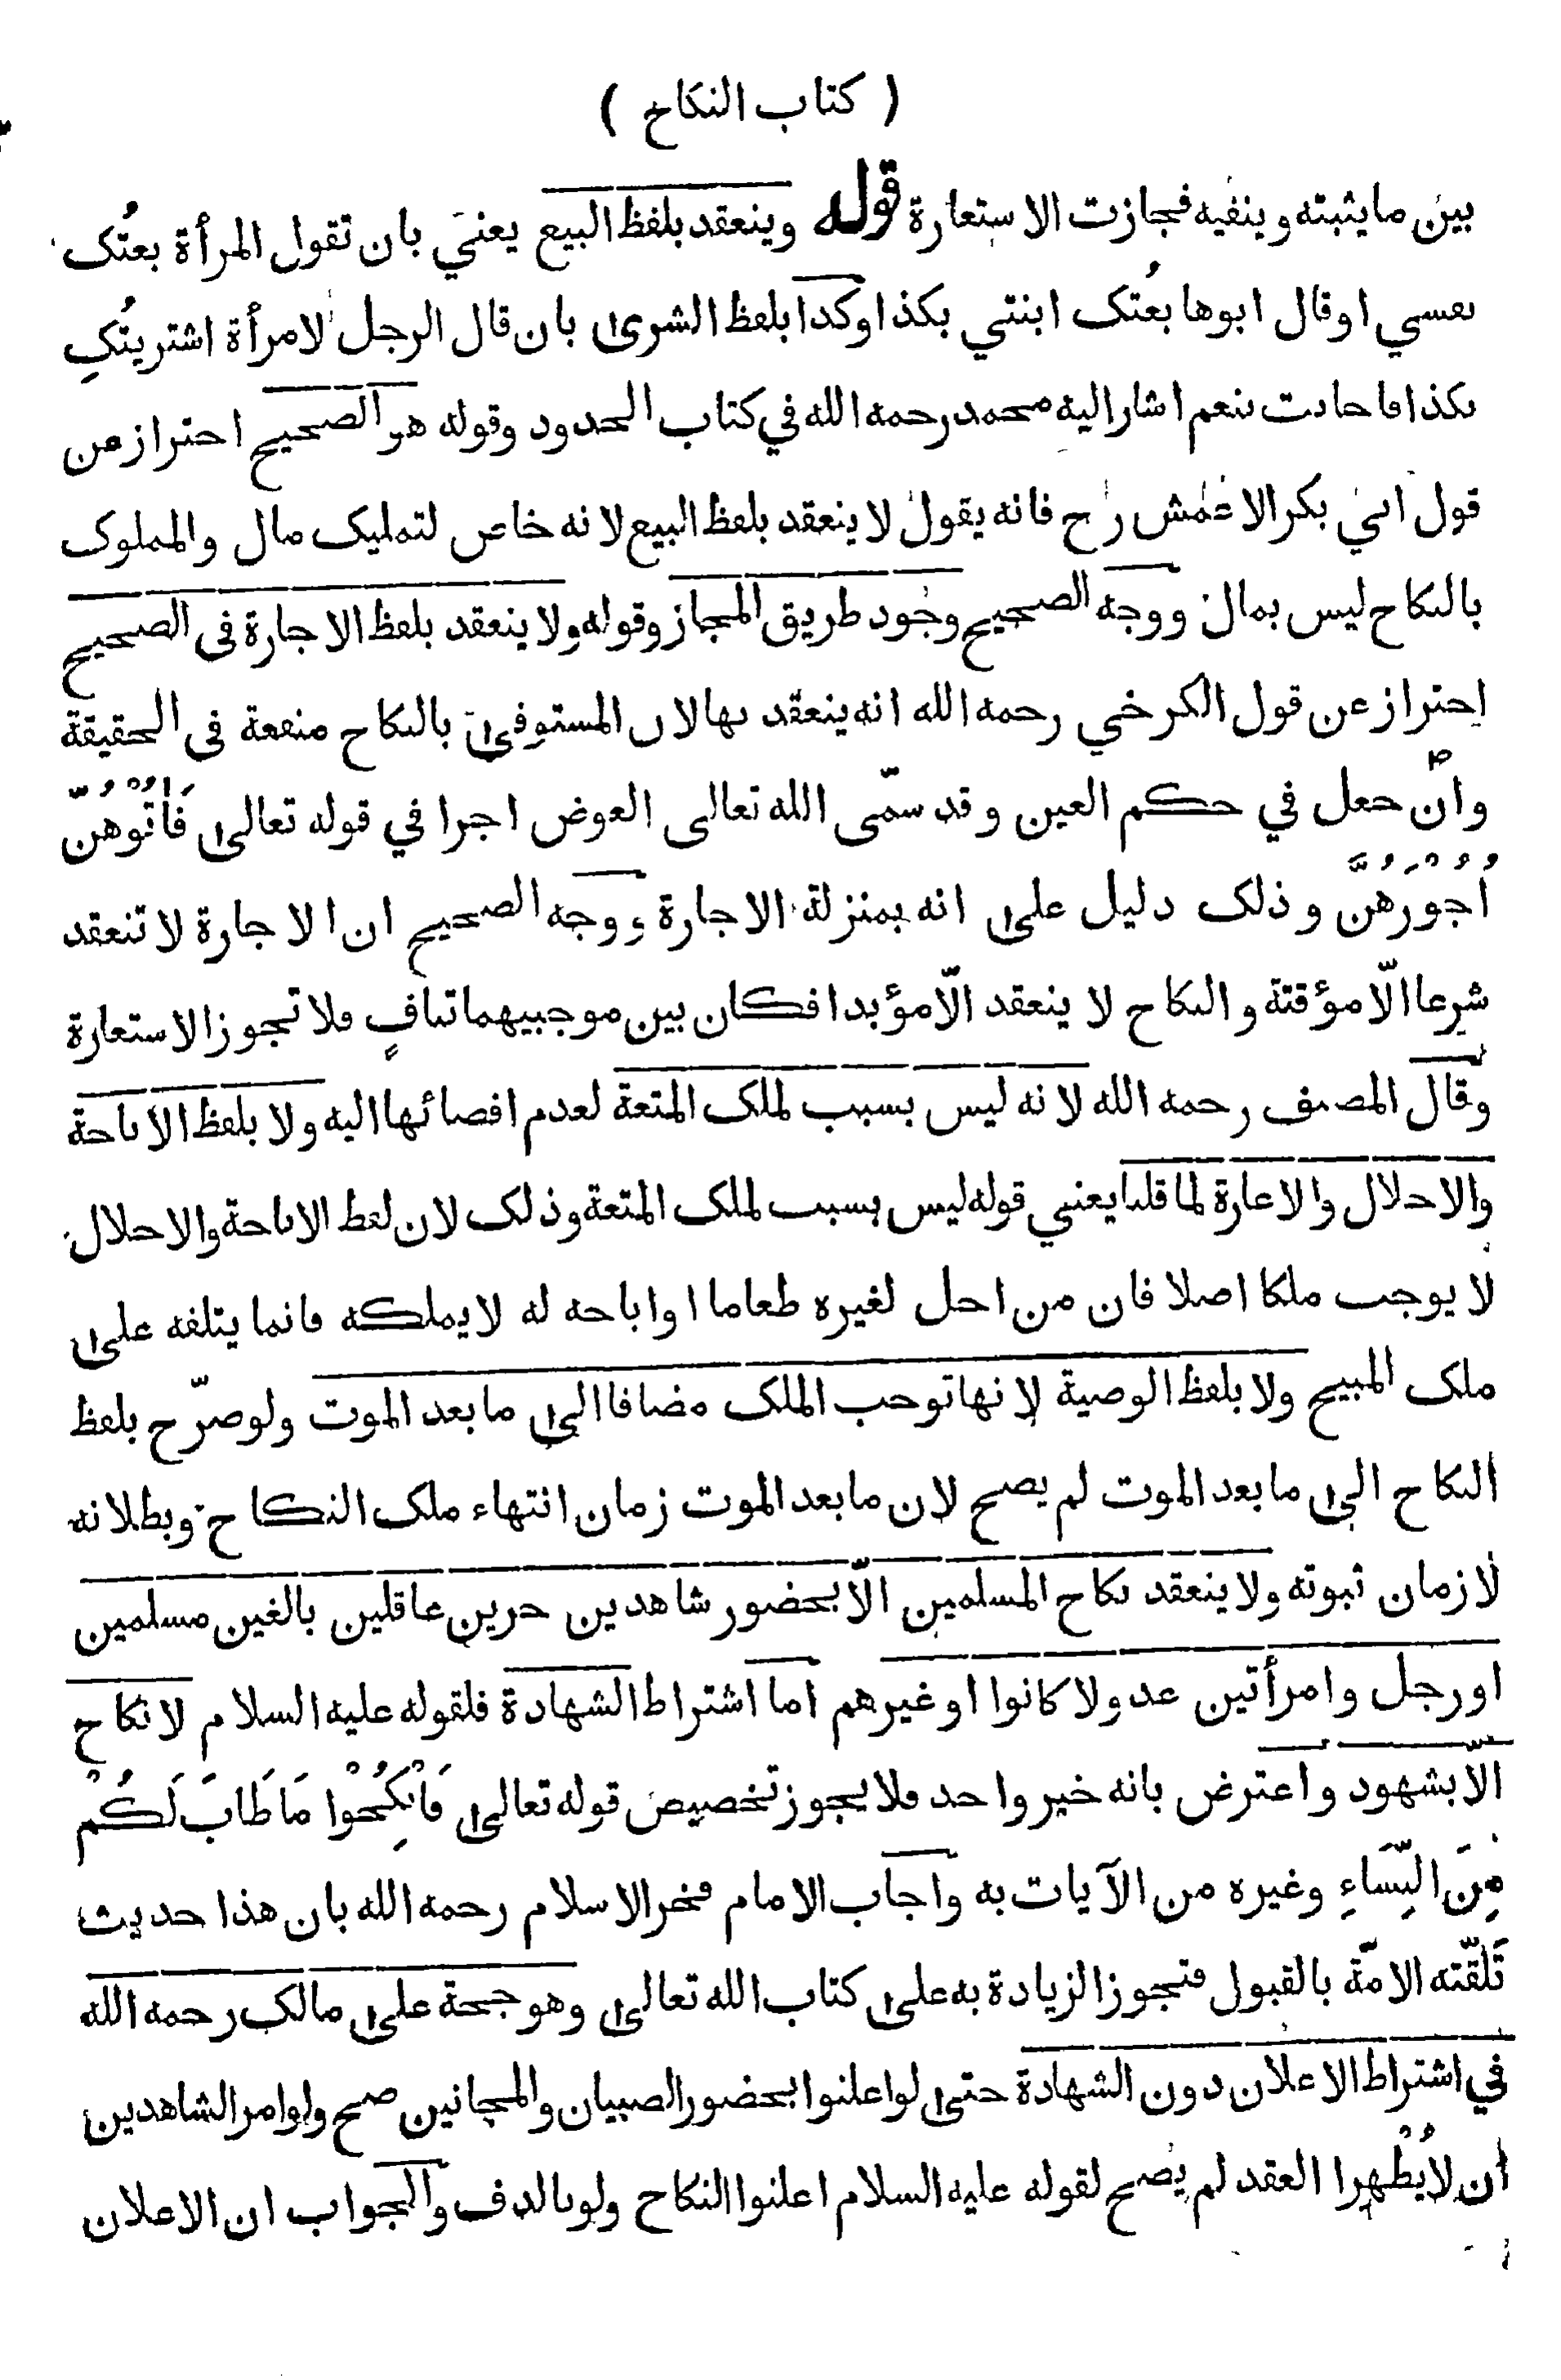 ( كتاب النكاح )
بين ما يثبته وينفيه فجازت الاستعارة قوله وينعقد بلفظ البيع يعني بان تقول المرأة بعتُك
نفسي او قال ابوها بعُتك ابنتي بكذا وكذا بلفظ الشرى بان قال الرجل لامرأة اشتريتُكِ
بكذا فاجابت بنعم اشار اليه محمد رحمه الله في كتاب الحدود وقوله هو الصحيح احتراز عن
قول ابي بكر الاعمش رح فانه يقول لا ينعقد بلفظ البيع لانه خاص لتمليك مال والمملوك
بالنكاح ليس بمال ووجه الصحيح وجود طريق المجاز وقوله ولا ينعقد بلفظ الاجارة فى الصحيح
احتراز عن قول الكرخي رحمه الله انه ينعقد بها لان المستوفى بالنكاح منفعة فى الحقيقة
وان جعل في حكم العين وقد سمّى الله تعالى العوض اجرا في قوله تعالى فَاٰتُوْهُنَّ
اُجُوْرَهُنَّ وذلك دليل على انه بمنزلة الاجارة ووجه الصحيح ان الاجارة لا تنعقد
شرعا الّا مؤقتة والنكاح لا ينعقد الّا مؤبدا فكان بين موجبيهما تنافٍ فلا تجوز الاستعارة
وقال المصنف رحمه الله لانه ليس بسبب لملك المتعة لعدم افضائها اليه ولا بلفظ الاباحة
والاحلال والاعارة لما قلنا يعني قوله ليس بسبب لملك المتعة وذلك لان لفظ الاباحة والاحلال
لا يوجب ملكا اصلا فان من احل لغيره طعاما او اباحه له لا يملكه فانما يتلفه على
ملك المبيح ولا بلفظ الوصية لانها توجب الملك مضافا الى ما بعد الموت ولو صرّح بلفظ
النكاح الى ما بعد الموت لم يصح لان ما بعد الموت زمان انتهاء ملك النكاح وبطلانه
لا زمان ثبوته ولا ينعقد نكاح المسلمين الّا بحضور شاهدين حرين عاقلين بالغين مسلمين
او رجل وامرأتين عدولا كانوا او غيرهم اما اشتراط الشهادة فلقوله عليه السلام لا نكاح
الّا بشهود واعترض بانه خبر واحد فلا يجوز تخصيص قوله تعالى فَانْكِحُوْا مَا طَابَ لَكُمْ
مِنَ النِّسَاءِ وغيره من الآيات به واجاب الامام فخر الاسلام رحمه الله بان هذا حديث
تَلَقّته الامّة بالقبول فتجوز الزيادة به على كتاب الله تعالى وهو حجة على مالك رحمه الله
في اشتراط الاعلان دون الشهادة حتى لو اعلنوا بحضور الصبيان والمجانين صح ولو امر الشاهدين
ان لا يُظْهِرا العقد لم يصح لقوله عليه السلام اعلنوا النكاح ولو بالدف والجواب ان الاعلان